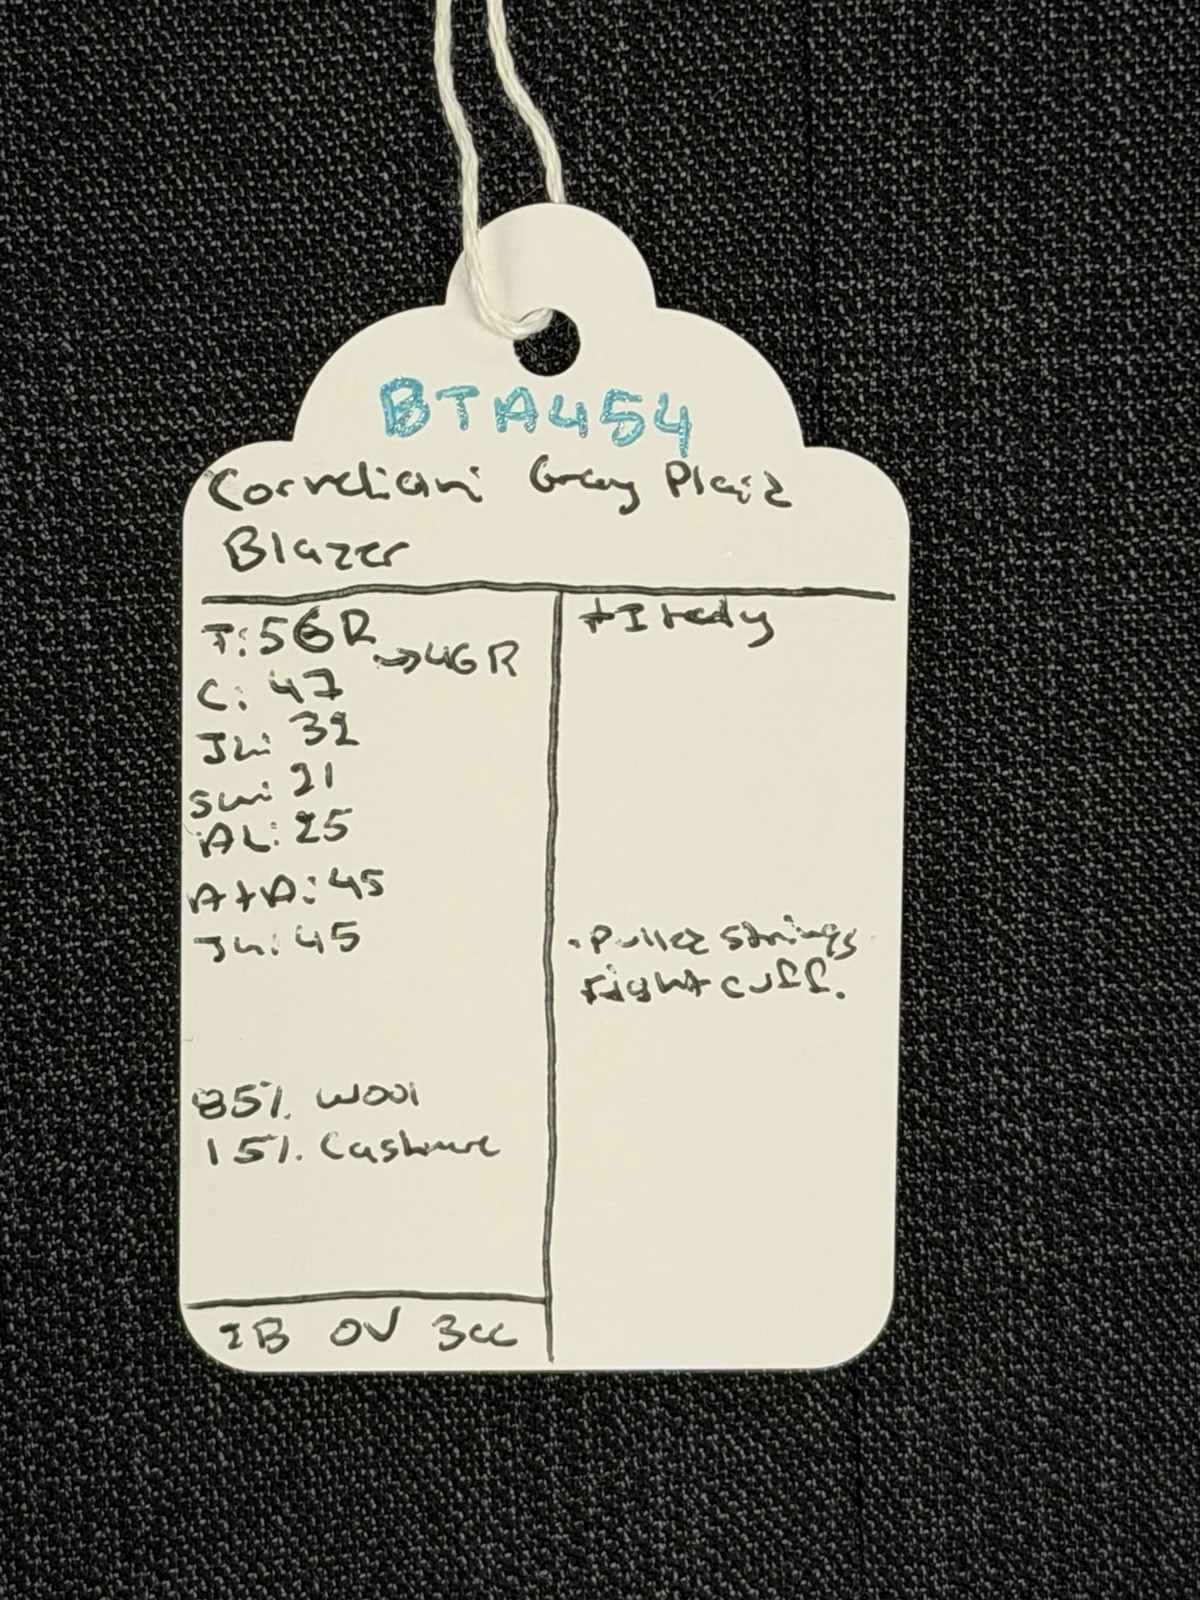 BTA454
Corneliani Gray Plaid
Blazer
T: 56R
→46R
C: 47
JL: 32
SW: 21
AL: 25
AtA: 45
JW: 45
85% Wool
15% Cashmere
2B OV 3cc
+Italy
• Pulled strings
right cuff.